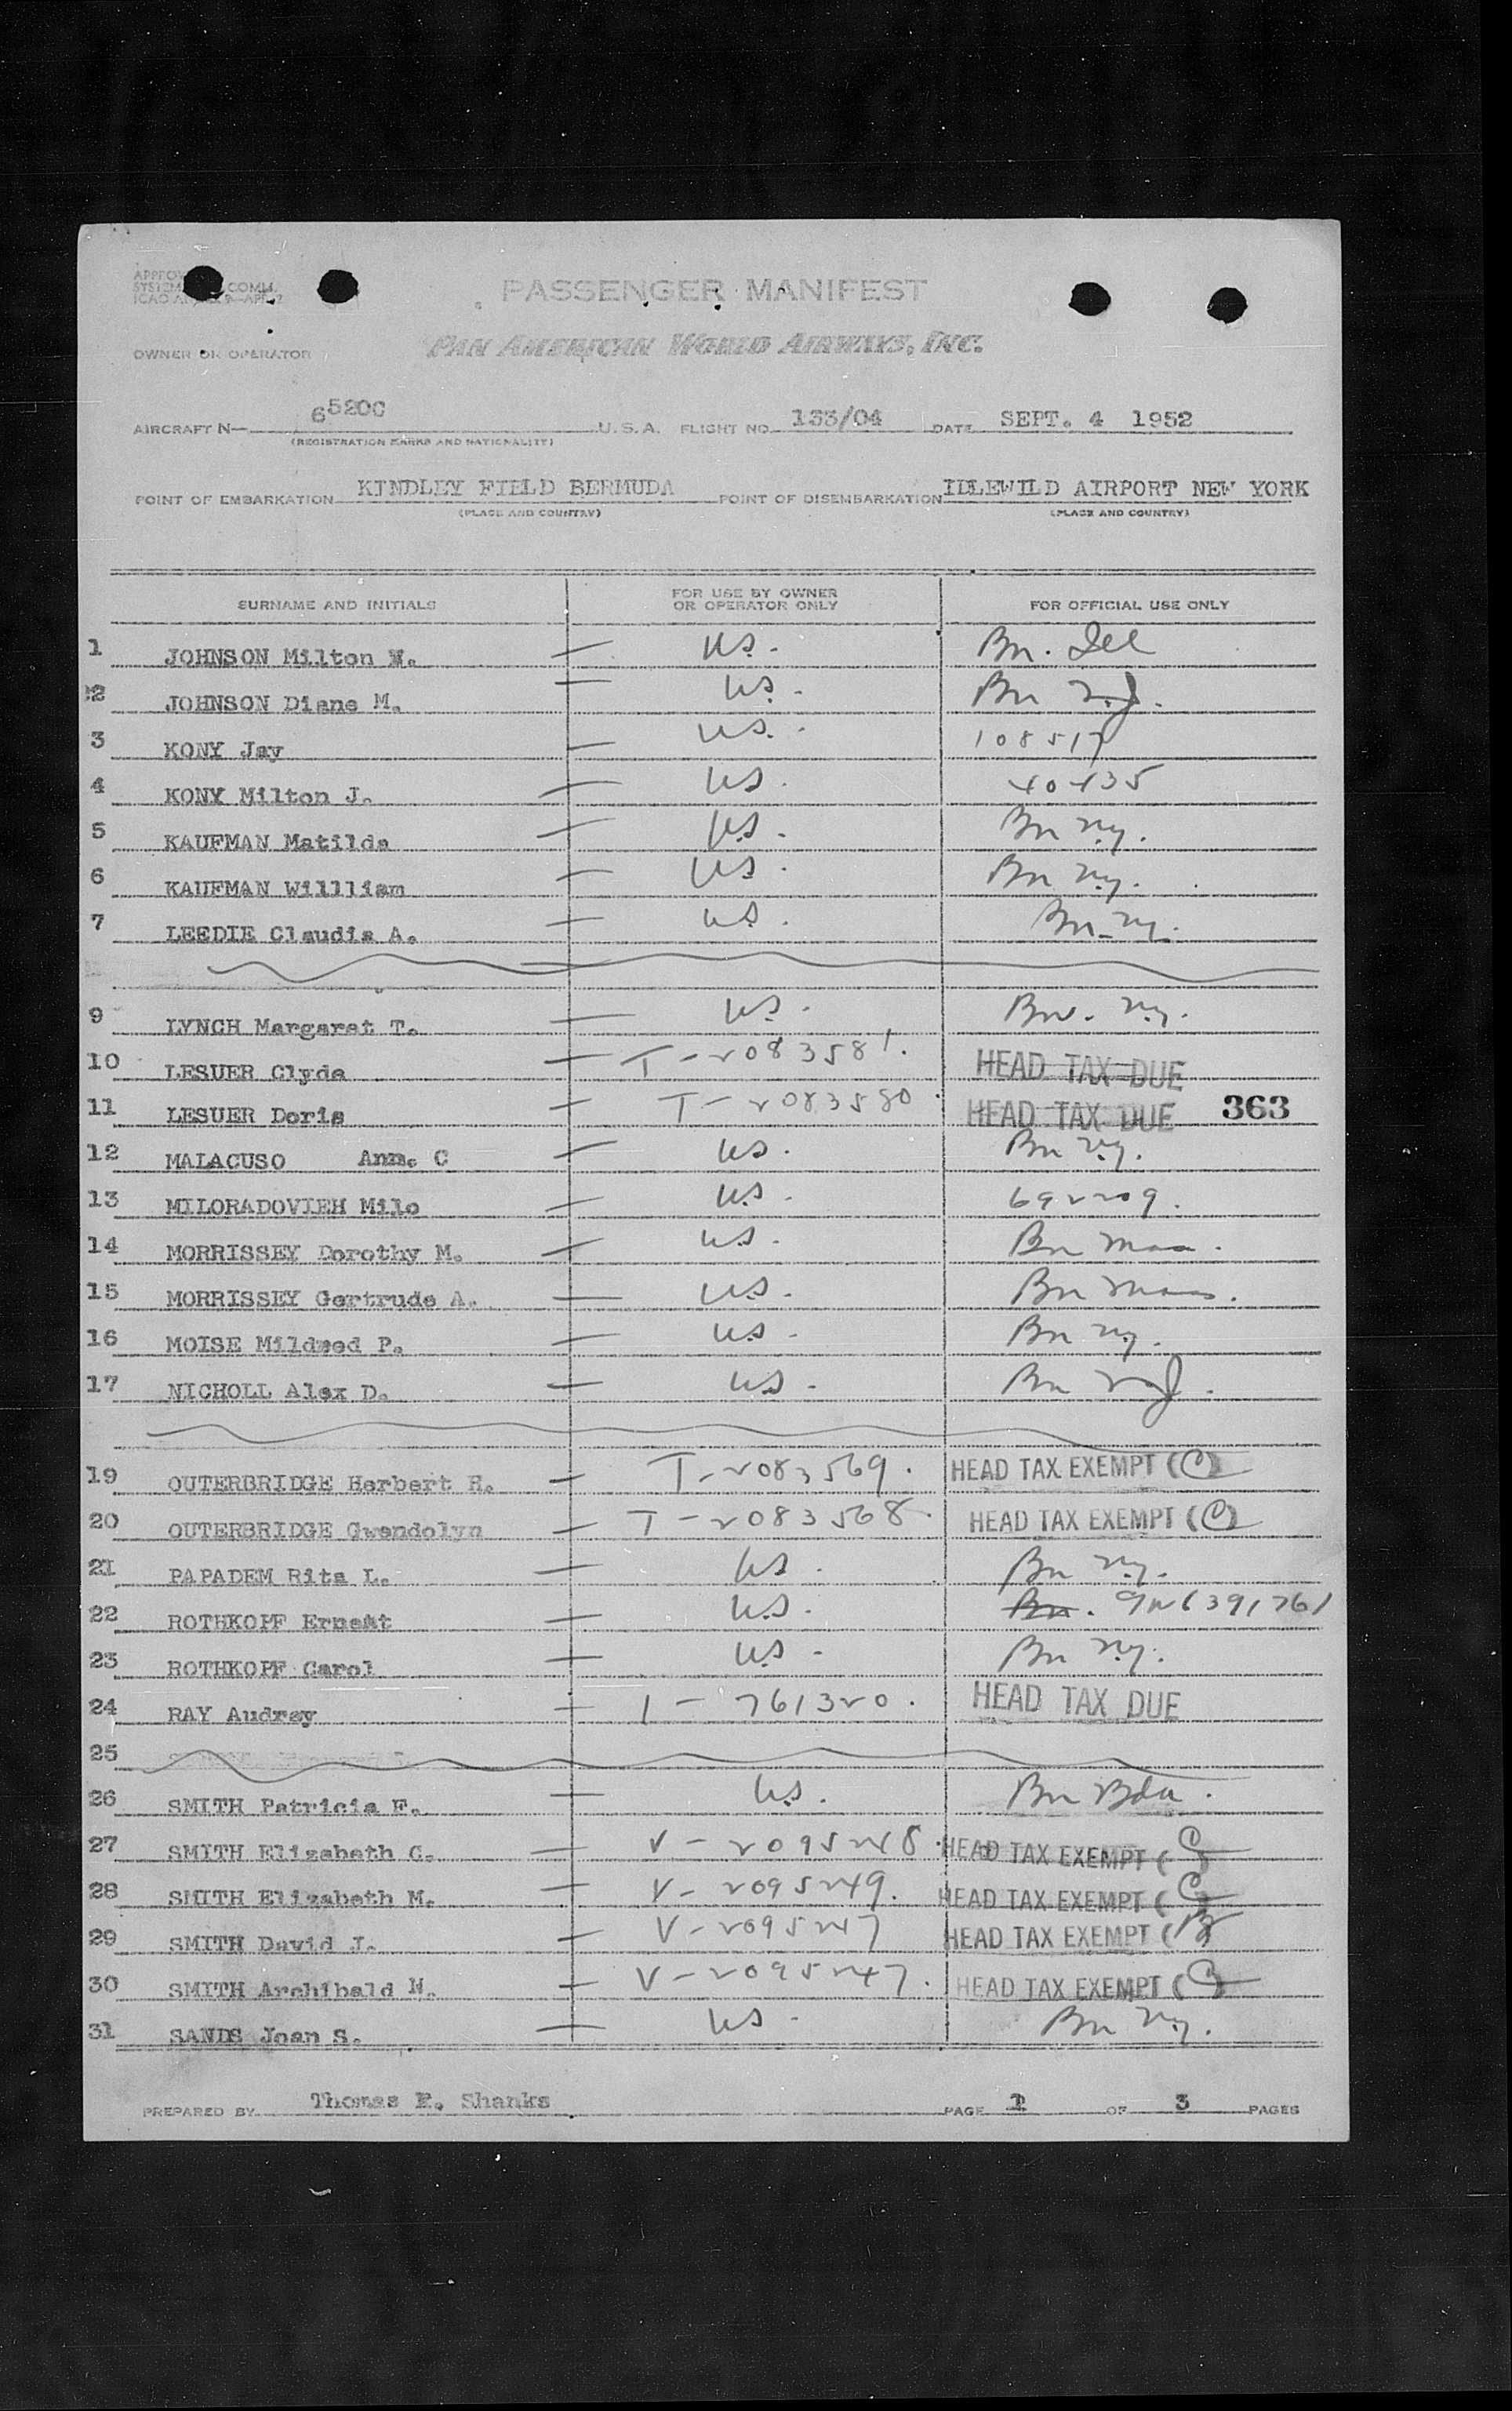 PASSENGER MANIFEST
OWNER OR OPERATOR PAN AMERICAN WORLD AIRWAYS, INC.
AIRCRAFT N— 6520C U.S.A. FLIGHT NO. 133/04 DATE SEPT. 4 1952
(REGISTRATION MARKS AND NATIONALITY)
POINT OF EMBARKATION KINDLEY FIELD BERMUDA POINT OF DISEMBARKATION IDLEWILD AIRPORT NEW YORK
(PLACE AND COUNTRY) (PLACE AND COUNTRY)
SURNAME AND INITIALS FOR USE BY OWNER OR OPERATOR ONLY FOR OFFICIAL USE ONLY
1 JOHNSON Milton W. — US. Bn.
2 JOHNSON Diane M. — US. Bn N.J.
3 KONY Jay — US. 108517
4 KONY Milton J. — US.
5 KAUFMAN Matilda — US. Bn N.Y.
6 KAUFMAN Willliam — US. Bn N.Y.
7 LEEDIE Claudia A. — US. Bn N.Y.
9 LYNCH Margaret T. — US. Bn. N.Y.
10 LESUER Clyde — T-2083581. HEAD TAX DUE
11 LESUER Doris — T-2083580. HEAD TAX DUE 363
12 MALACUSO Ann. C — US. Bn N.Y.
13 MILORADOVIEH Milo — US. 692209.
14 MORRISSEY Dorothy M. — US. Bn Mass.
15 MORRISSEY Gertrude A. — US. Bn Mass.
16 MOISE Mildred P. — US. Bn N.Y.
17 NICHOLL Alex D. — US. Bn N.J.
19 OUTERBRIDGE Herbert R. — T-2083569. HEAD TAX EXEMPT (C)
20 OUTERBRIDGE Gwendolyn — T-2083568. HEAD TAX EXEMPT (C)
21 PAPADEM Rita L. — US. Bn N.Y.
22 ROTHKOPF Ernest — US. Bn.
23 ROTHKOPF Carol — US. Bn N.Y.
24 RAY Audrey — 1-761320. HEAD TAX DUE
25
26 SMITH Patricia F. — US. Bn Bda.
27 SMITH Elizabeth C. — V-2095248. HEAD TAX EXEMPT (C
28 SMITH Elizabeth M. — V-2095249. HEAD TAX EXEMPT (C
29 SMITH David J. — V-2095247 HEAD TAX EXEMPT (
30 SMITH Archibald N. — V-2095247. HEAD TAX EXEMPT (C
31 SANDS Joan S. — US. Bn N.Y.
PREPARED BY Thomas E. Shanks PAGE 1 OF 3 PAGES